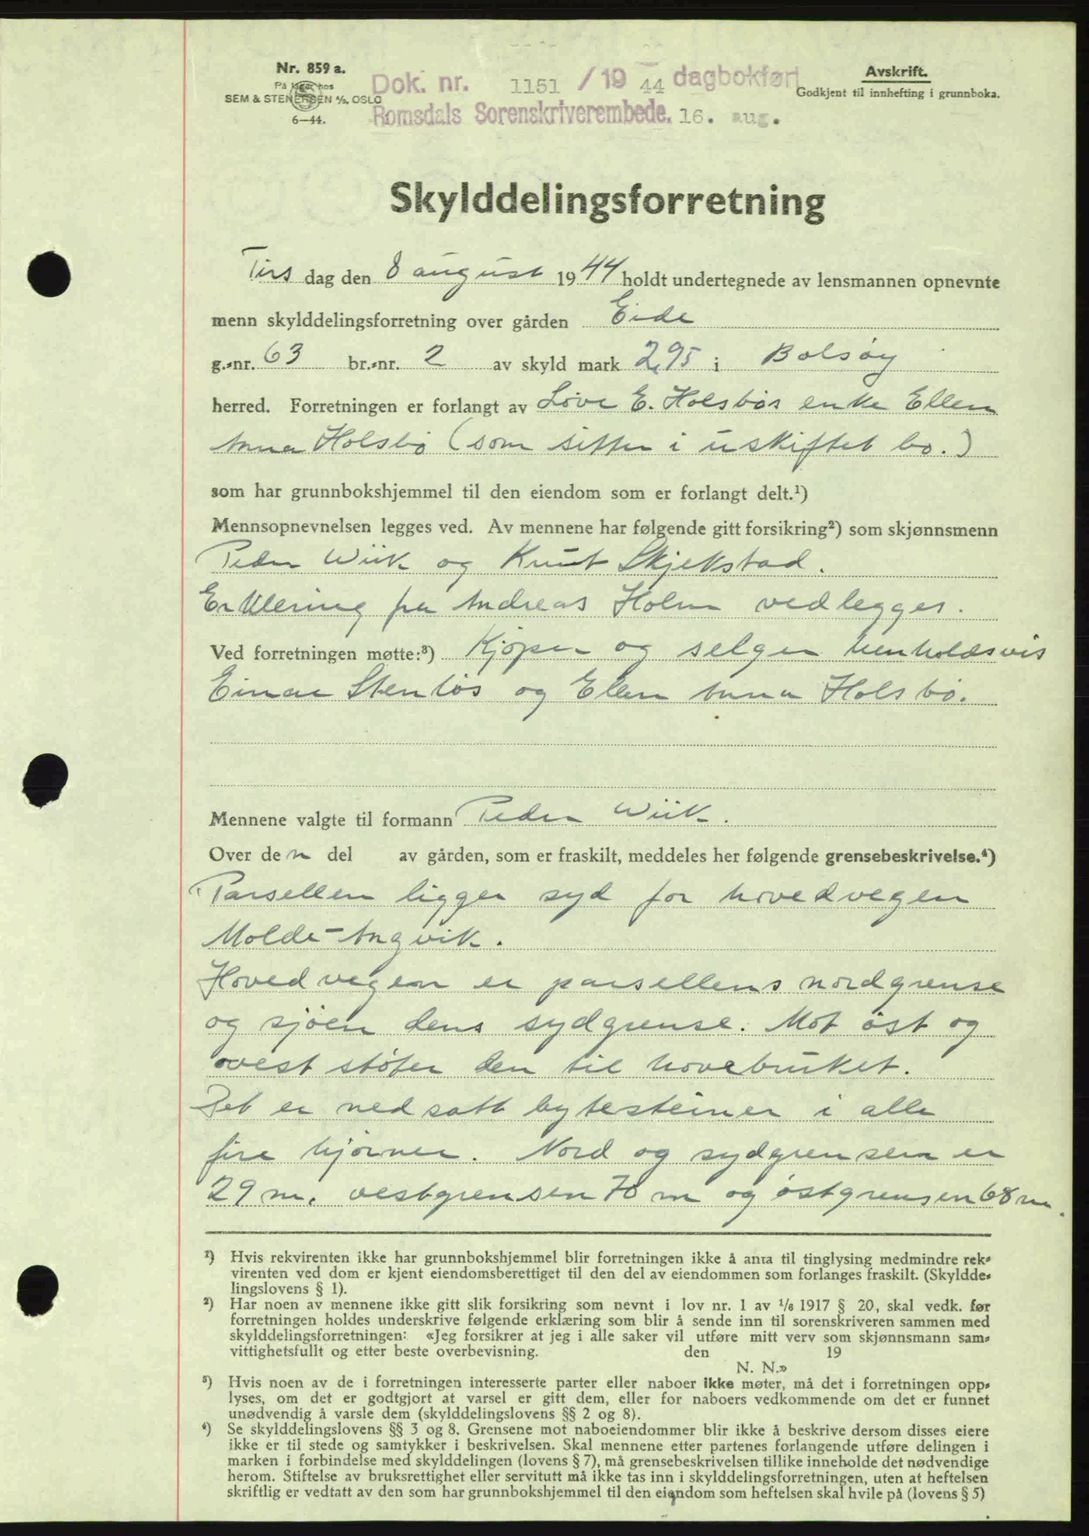 Nr. 859 a.
På lager hos
SEM & STENERSEN A/S, OSLO
6—44.
Dok. nr. 1151 / 19 44 dagbokført
Romsdals Sorenskriverembede. 16. aug.
Avskrift.
Godkjent til innhefting i grunnboka.
Skylddelingsforretning
Tirs dag den 8 august 1944 holdt undertegnede av lensmannen opnevnte
menn skylddelingsforretning over gården Eide
g.-nr. 63 br.-nr. 2 av skyld mark 2,95 i Bolsøy
herred. Forretningen er forlangt av Love E. Holsbøs enke Ellen
Anna Holsbø (som sitter i uskiftet bo.)
som har grunnbokshjemmel til den eiendom som er forlangt delt.¹)
Mennsopnevnelsen legges ved. Av mennene har følgende gitt forsikring²) som skjønnsmenn
Peder Wiik og Knut Skjekstad.
Erklering fra Andreas Holm vedlegges.
Ved forretningen møtte:³) Kjøper og selger henholdsvis
Einar Stenløs og Ellen Anna Holsbø.
Mennene valgte til formann Peder Wiik.
Over den del av gården, som er fraskilt, meddeles her følgende grensebeskrivelse.⁴)
Parsellen ligger syd for hovedvegen
Molde-Angvik.
Hovedvegen er parsellens nordgrense
og sjøen dens sydgrense. Mot øst og
vest støter den til hovebruket.
Det er nedsatt bytesteiner i alle
fire hjørner. Nord og sydgrensen er
29 m. vestgrensen 70 m og østgrensen 68 m.
¹) Hvis rekvirenten ikke har grunnbokshjemmel blir forretningen ikke å anta til tinglysing medmindre rek-
virenten ved dom er kjent eiendomsberettiget til den del av eiendommen som forlanges fraskilt. (Skyldde-
lingslovens § 1).
²) Har noen av mennene ikke gitt slik forsikring som nevnt i lov nr. 1 av 1/6 1917 § 20, skal vedk. før
forretningen holdes underskrive følgende erklæring som blir å sende inn til sorenskriveren sammen med
skylddelingsforretningen: «Jeg forsikrer at jeg i alle saker vil utføre mitt verv som skjønnsmann sam-
vittighetsfullt og etter beste overbevisning. den 19
N. N.»
³) Hvis noen av de i forretningen interesserte parter eller naboer ikke møter, må det i forretningen opp-
lyses, om det er godtgjort at varsel er gitt dem, eller for naboers vedkommende om det er funnet
unødvendig å varsle dem (skylddelingslovens §§ 2 og 8).
⁴) Se skylddelingslovens §§ 3 og 8. Grensene mot naboeiendommer blir ikke å beskrive dersom disses eiere
ikke er til stede og samtykker i beskrivelsen. Skal mennene etter partenes forlangende utføre delingen i
marken i forbindelse med skylddelingen (lovens § 7), må grensebeskrivelsen tillike inneholde det nødvendige
herom. Stiftelse av bruksrettighet eller servitutt må ikke tas inn i skylddelingsforretningen, uten at heftelsen
skriftlig er vedtatt av den som har grunnbokshjemmel til den eiendom som heftelsen skal hvile på (lovens § 5)